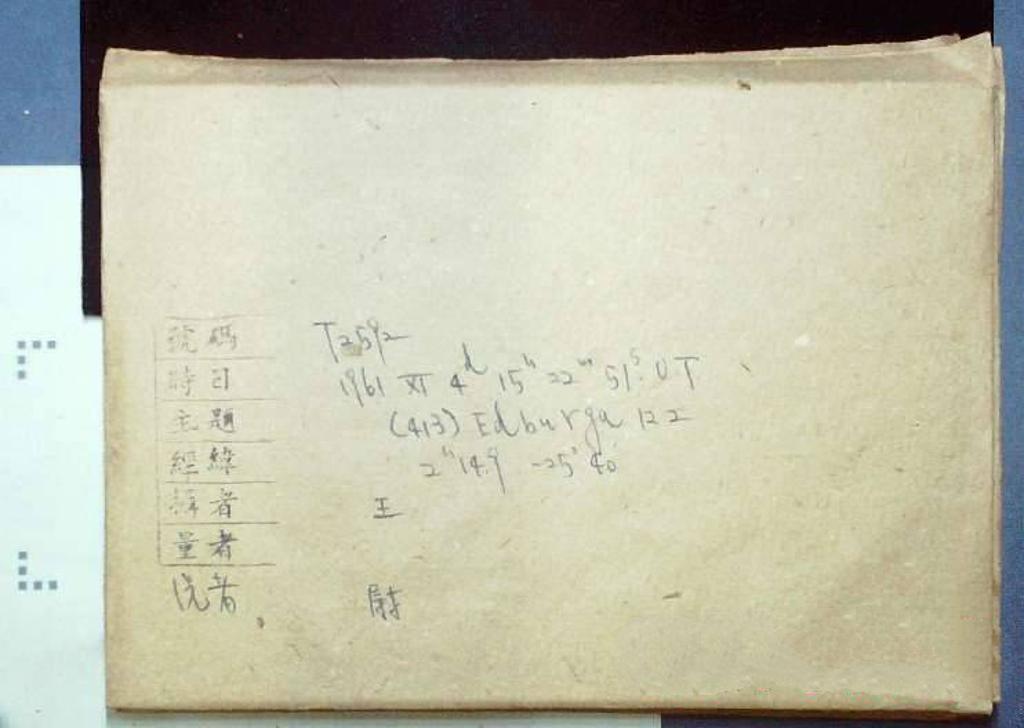 號碼 T2592
時日 1961 XI 4d 15h 22m 51s. UT
主題 (413) Edburga 12.2
經緯 2h 14.9 -25° 40'
攝者 王
量者
洗者 尉